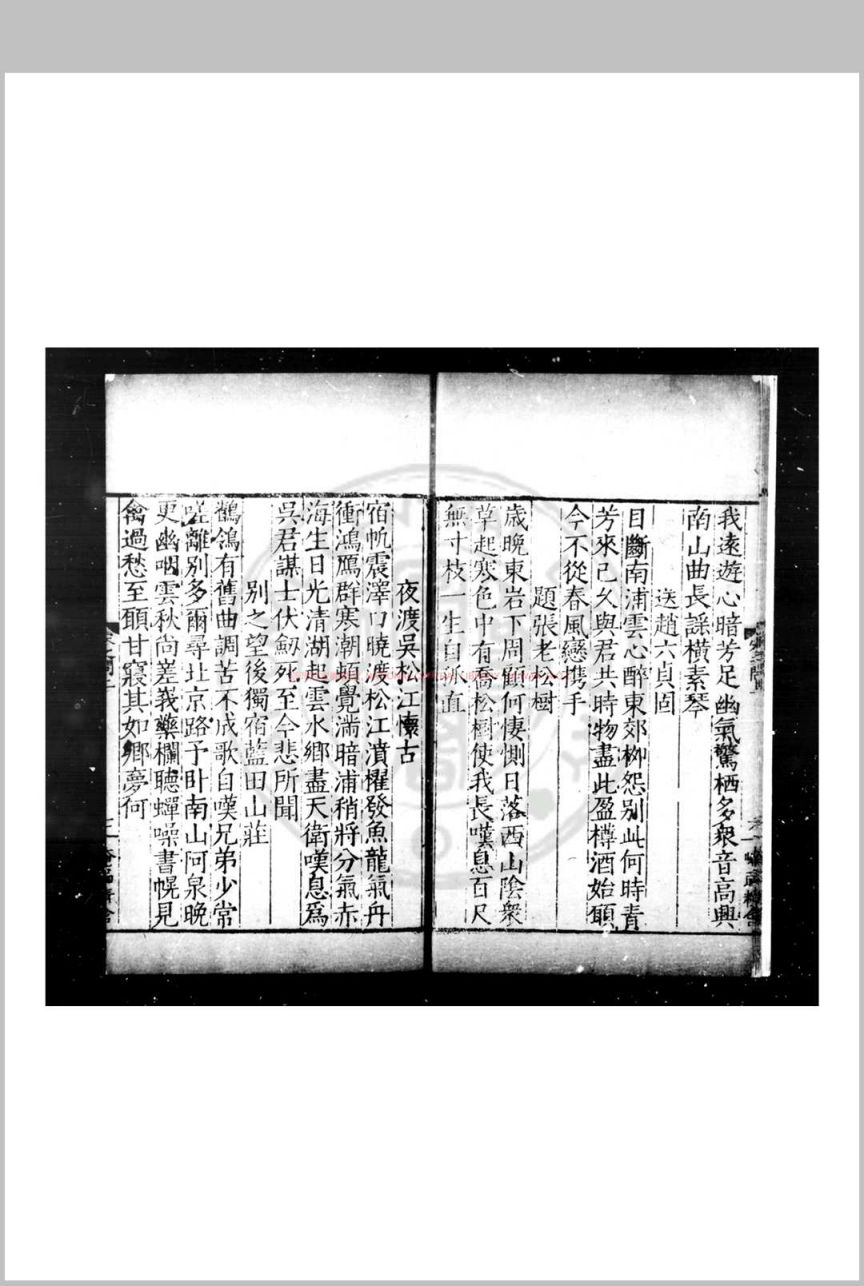 我遠遊心暗芳足幽氣驚栖多衆音高興
南山曲長謡橫素琴
送趙六貞固
目斷南浦雲心醉東郊栁怨別此何時青
芳來已久與君共時物盡此盈樽酒始願
今不從春風戀携手
題張老松樹
歳晚東岩下周顧何悽惻日落西山陰衆
草起寒色中有喬松樹使我長嘆息百尺
無寸枝一生自孤直
夜渡吳松江懷古
宿帆震澤口曉渡松江濆櫂發魚龍氣舟
衝鴻鴈群寒潮頓覺滿暗浦稍將分氣赤
海生日光清湖起雲水鄉盡天衛嘆息爲
吳君謀士伏劒死至今悲所聞
別之望後獨宿藍田山莊
鶺鴒有舊曲調苦不成歌自嘆兄弟少常
嗟離別多爾尋北京路予卧南山阿泉晚
更幽咽雲秋尚嵳峩藥欄聽蟬噪書幌見
禽過愁至願甘寢其如鄉夢何